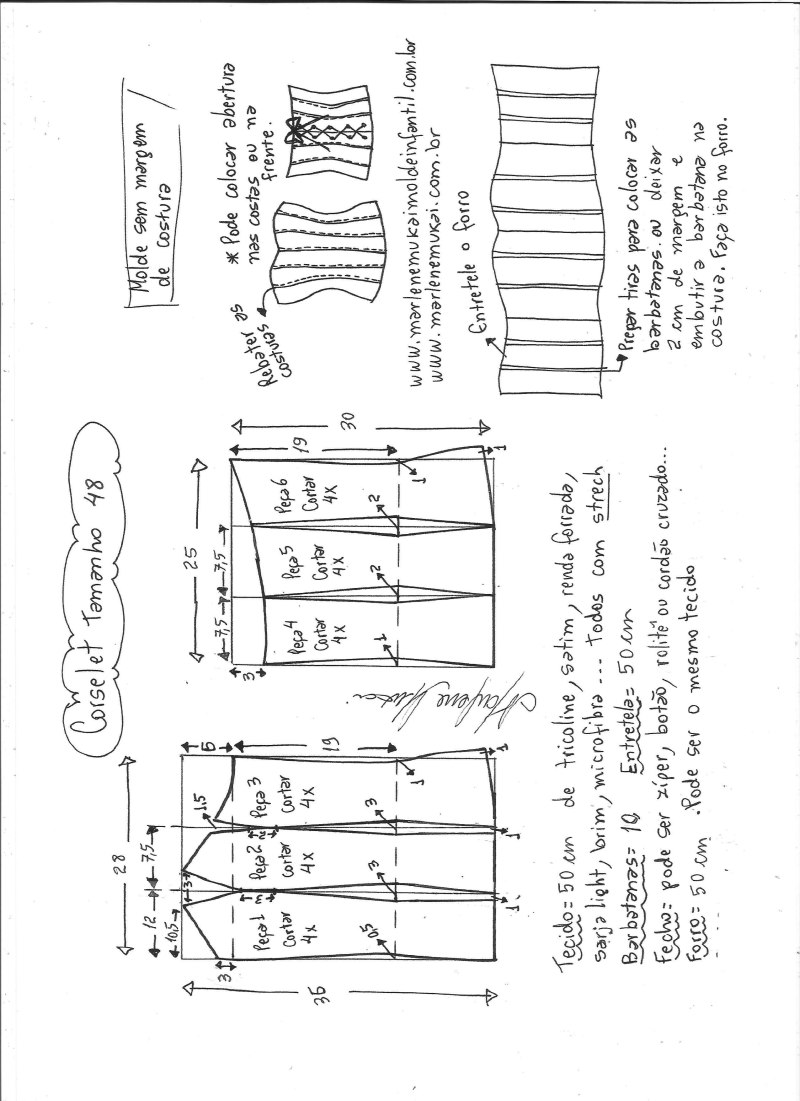 Corselet Tamanho 48
Molde sem margem
de costura
28
12
7,5
10,5
3
5
1,5
19
35
3
3
2
Peça 1
Cortar
4x
Peça 2
Cortar
4x
Peça 3
Cortar
4x
0,5
3
3
1
1
1
1
25
7,5
7,5
3
19
30
Peça 4
Cortar
4x
Peça 5
Cortar
4x
Peça 6
Cortar
4x
1
2
2
1
1
Rebater as
costuras
* Pode colocar abertura
nas costas ou na
frente.
www.marlenemukaimoldeinfantil.com.br
www.marlenemukai.com.br
Entretele o forro
Prepar tiras para colocar as
barbatanas. ou deixar
2 cm de margem e
embutir a barbatana na
costura. Faça isto no forro.
Tecido = 50 cm de tricoline, satim, renda forrada,
sarja light, brim, microfibra... Todos com strech
Barbatanas = 10 Entretela = 50 cm
Fecho = pode ser zíper, botão, rolitê ou cordão cruzado...
Forro = 50 cm. Pode ser o mesmo tecido